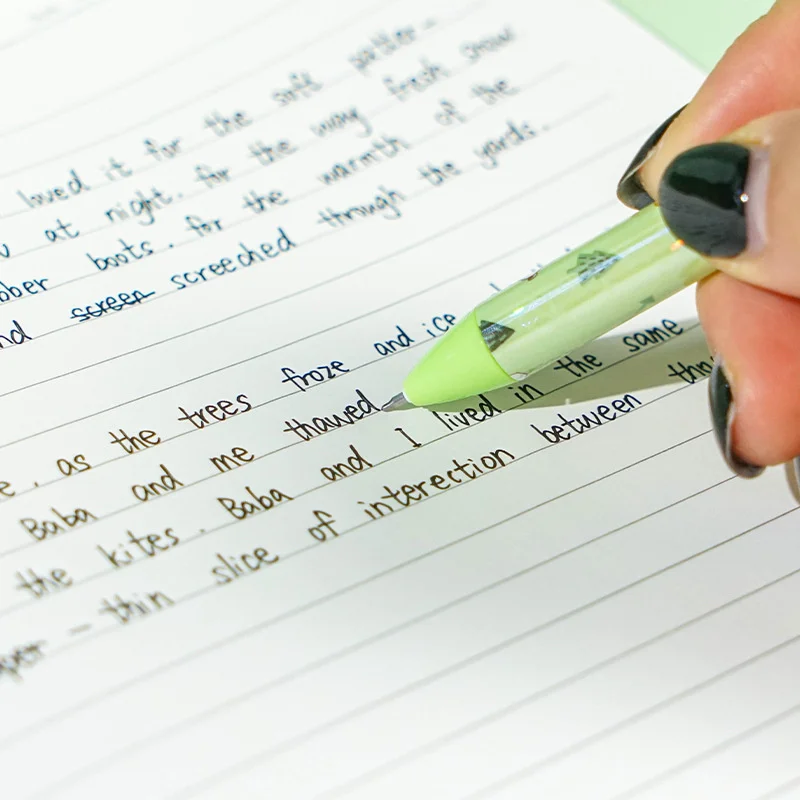 loved it for the soft patter
at night. for the way fresh snow
bber boots. for the warmth of the
nd screen screeched through the yards.
e. as the trees froze and ice
Baba and me thawed
the kites. Baba and I lived in the same
per - thin slice of interection between